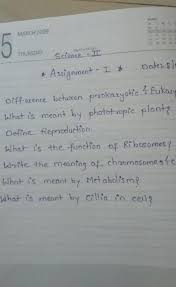 5
MARCH
THURSDAY
Science - II
* Assignment - I *
Difference between prokaryotic & Eukary
What is meant by phototropic plant?
Define Reproduction.
What is the function of Ribosomes?
Write the meaning of chromosomes &
What is meant by Metabolism?
What is meant by Cillia in cell?